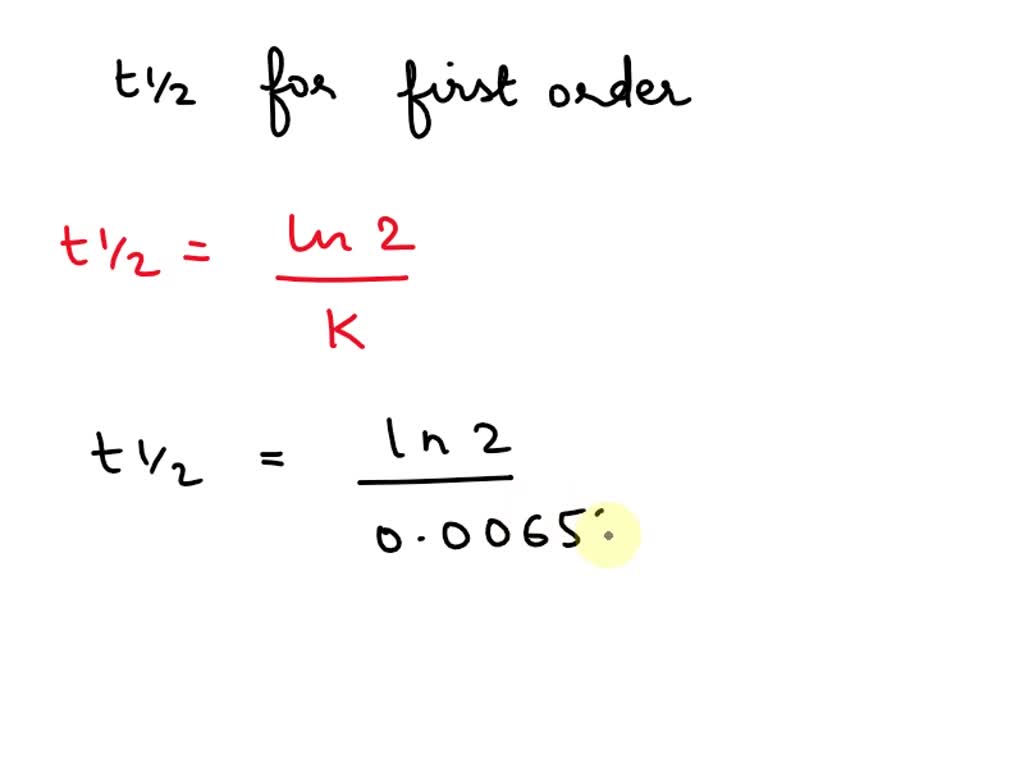 t1/2 for first order
t1/2 = ln 2
K
t1/2 = ln 2
0.0065